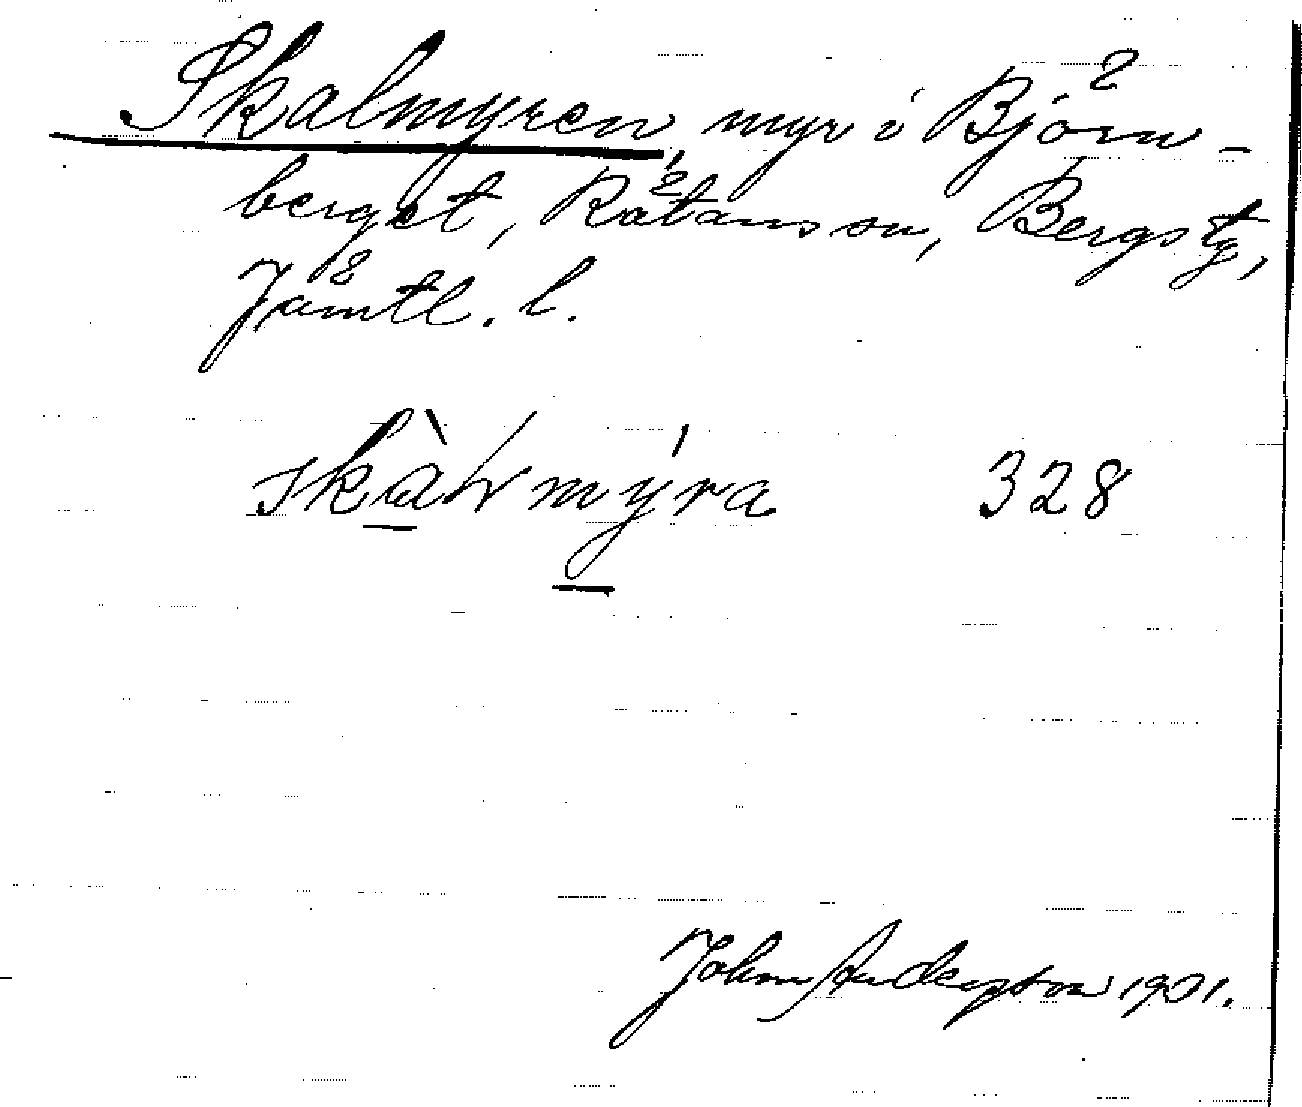 Skalmyren, myr i Björn-
berget, Rätans sn, Bergs tg,
Jämtl. l.
skàlmýra 328
John Anderson 1901.